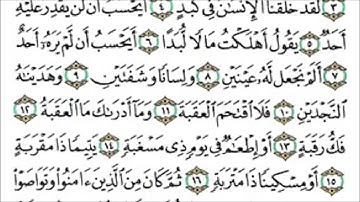 ٣ لَقَدْ خَلَقْنَا الْإِنسَانَ فِي كَبَدٍ ٤ أَيَحْسَبُ أَن لَّن يَقْدِرَ عَلَيْهِ
أَحَدٌ ٥ يَقُولُ أَهْلَكْتُ مَالًا لُّبَدًا ٦ أَيَحْسَبُ أَن لَّمْ يَرَهُ أَحَدٌ
٧ أَلَمْ نَجْعَل لَّهُ عَيْنَيْنِ ٨ وَلِسَانًا وَشَفَتَيْنِ ٩ وَهَدَيْنَاهُ
النَّجْدَيْنِ ١٠ فَلَا اقْتَحَمَ الْعَقَبَةَ ١١ وَمَا أَدْرَاكَ مَا الْعَقَبَةُ ١٢
فَكُّ رَقَبَةٍ ١٣ أَوْ إِطْعَامٌ فِي يَوْمٍ ذِي مَسْغَبَةٍ ١٤ يَتِيمًا ذَا مَقْرَبَةٍ
١٥ أَوْ مِسْكِينًا ذَا مَتْرَبَةٍ ١٦ ثُمَّ كَانَ مِنَ الَّذِينَ ءَامَنُوا وَتَوَاصَوْا